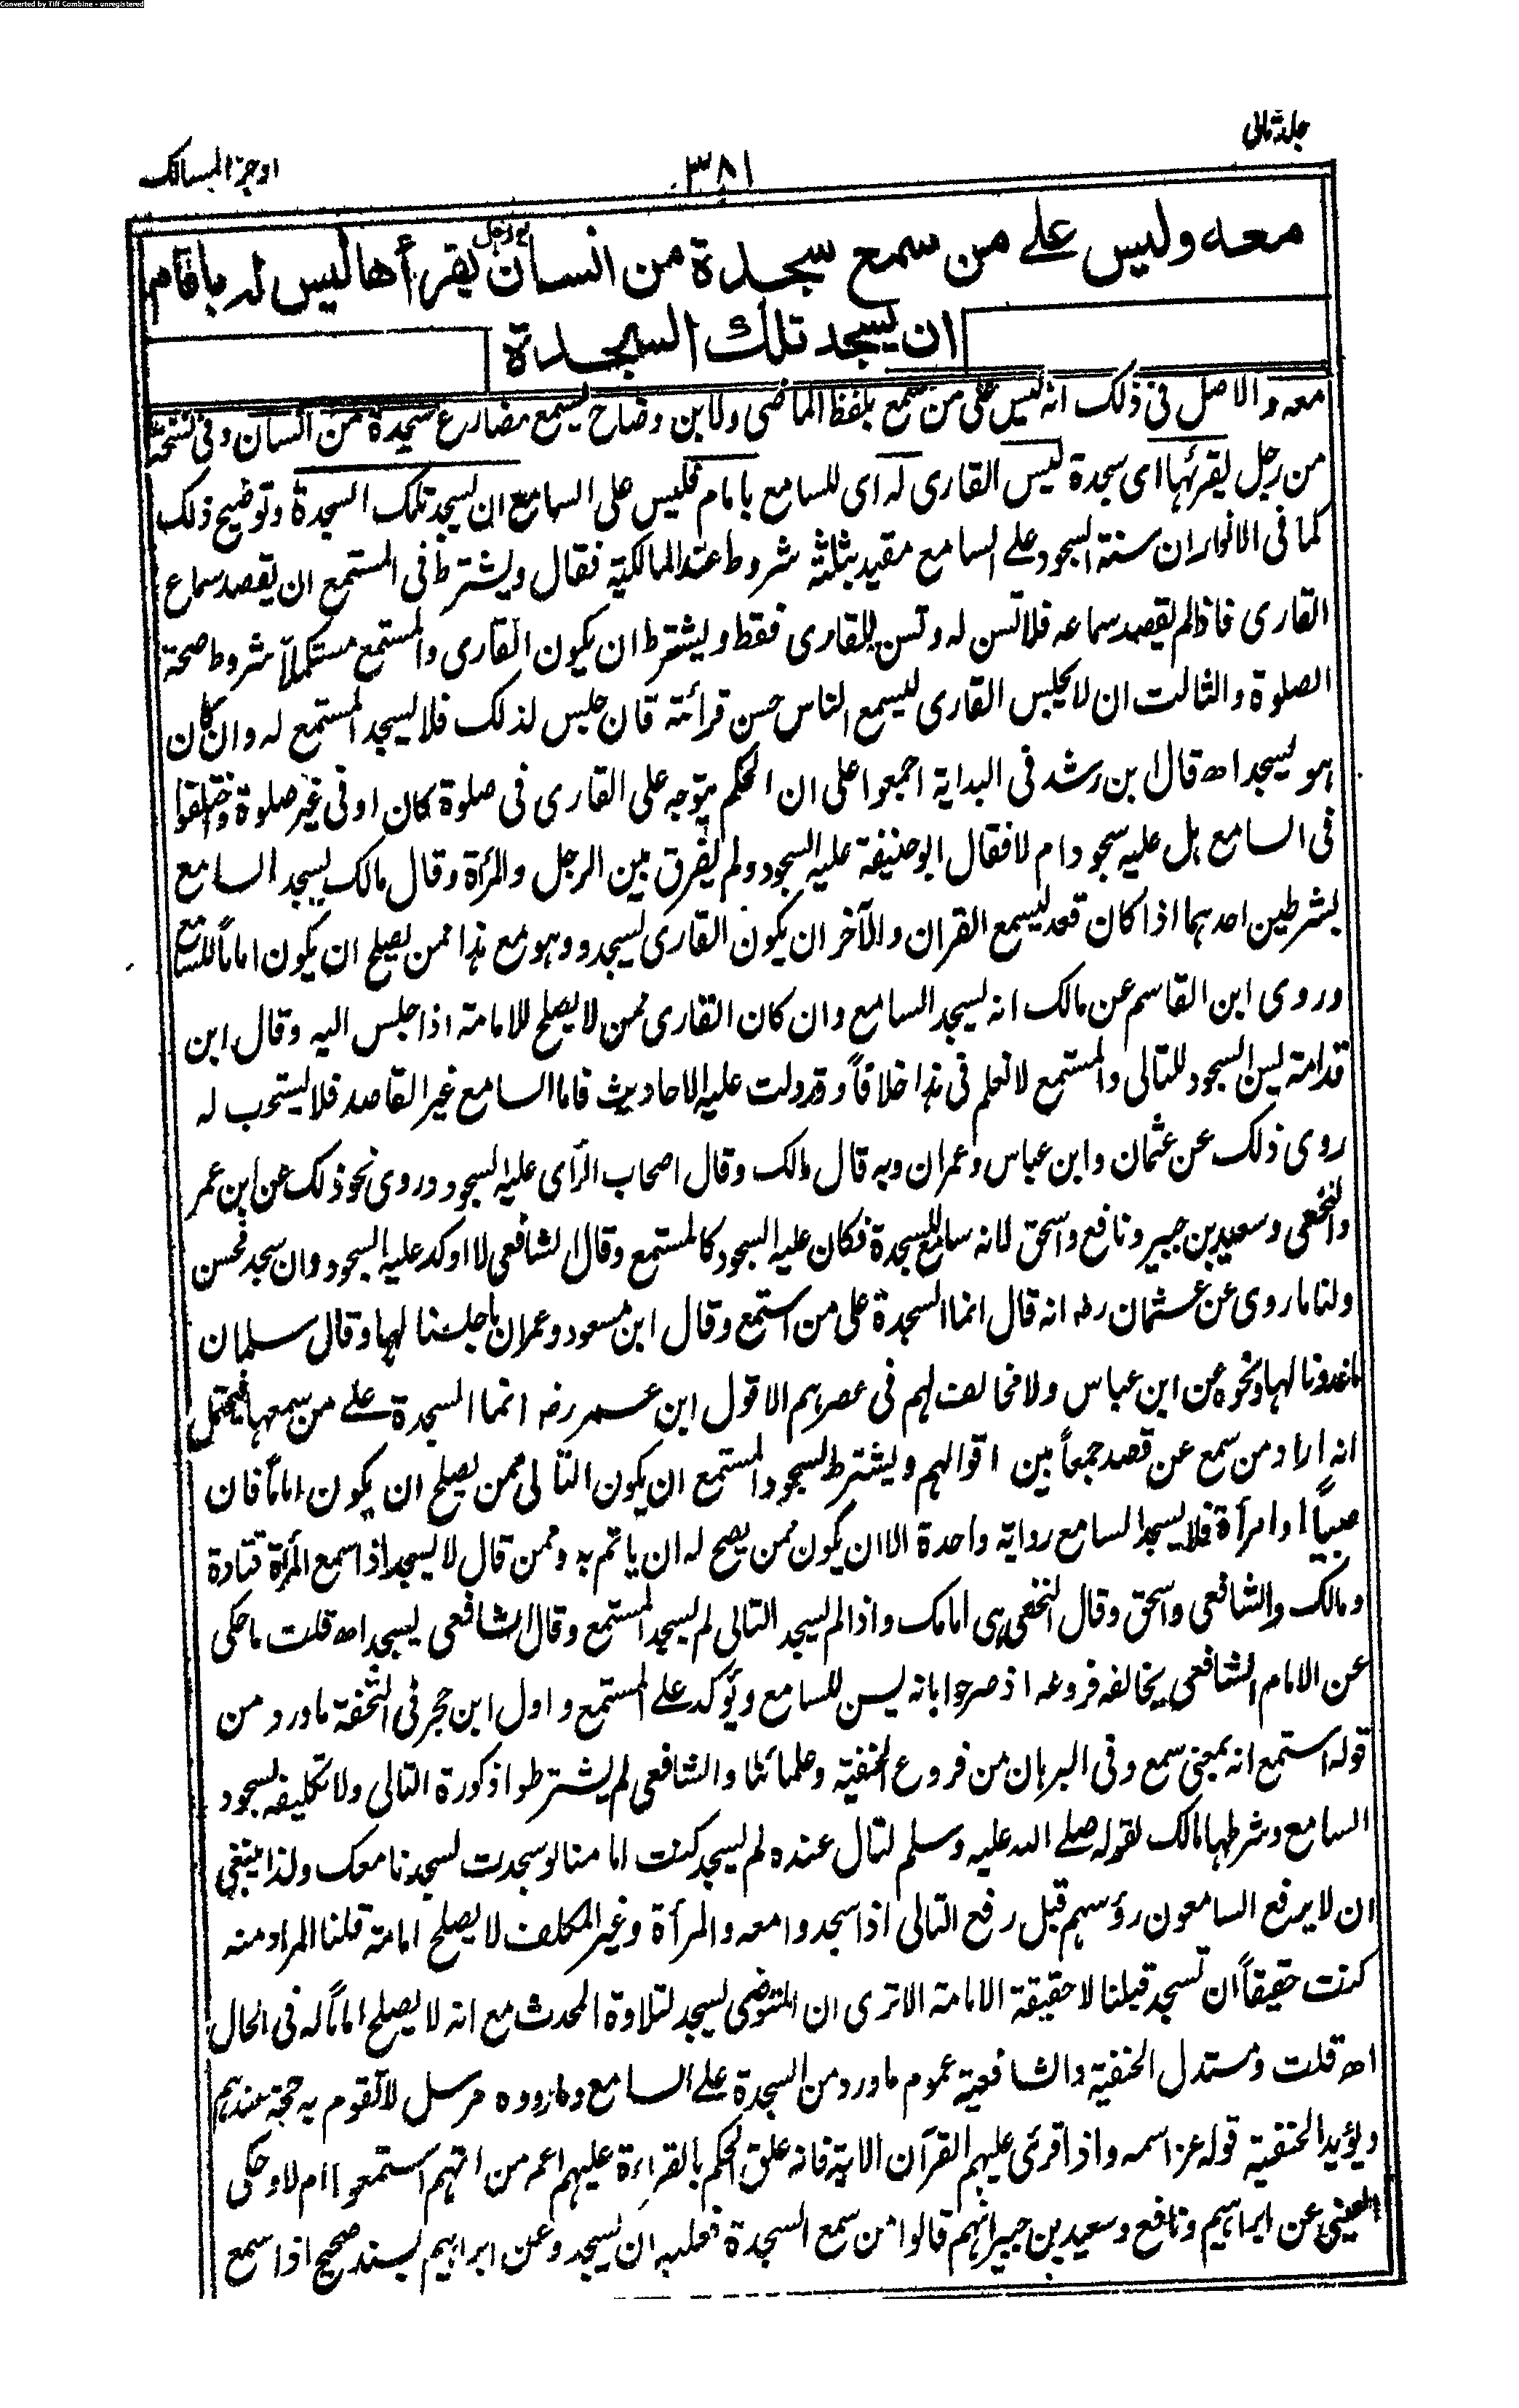 Converted by Tiff Combine - unregistered
جلد ثانی
۳۸۱
اوجز المسالک
معه وليس على من سمع سجدة من انسان يقرأها ليس له بامام
رجل
ان يسجد تلك السجدة
معه والاصل فى ذلك انه ليس على من سمع بلفظ الماضى ولابن وضاح يسمع مضارع سجدة من انسان وفى نسخة
من رجل يقرئها اى سجدة ليس القارى له اى للسامع بامام فليس على السامع ان يسجد تلك السجدة وتوضيح ذلك
كما فى الانوار ان سنة السجود على السامع مقيد بثلثة شروط عند المالكية فقال ويشترط فى المستمع ان يقصد سماع
القارى فاذا لم يقصد سماعه فلا تسن له وتسن للقارى فقط ويشترط ان يكون القارى والمستمع مستكملاً شروط صحة
الصلوة والثالث ان لا يجلس القارى ليسمع الناس حسن قرائته فان جلس لذلك فلا يسجد المستمع له وان كان
هو يسجد اھ قال ابن رشد فى البداية اجمعوا على ان الحكم يتوجه على القارى فى صلوة كان او فى غير صلوة واختلفوا
فى السامع هل عليه سجود ام لا فقال ابو حنيفة عليه السجود ولم يفرق بين الرجل والمرأة وقال مالك يسجد السامع
بشرطين احدهما اذا كان قعد ليسمع القران والآخر ان يكون القارى يسجد وهو مع هذا ممن يصلح ان يكون اماماً للسامع
وروى ابن القاسم عن مالك انه يسجد السامع وان كان القارى ممن لا يصلح للامامة اذا جلس اليه وقال ابن
قدامة يسن السجود للتالى والمستمع لا نعلم فى هذا خلافاً وقد دلت عليه الاحاديث فاما السامع غير القاصد فلا يستحب له
روى ذلك عن عثمان وابن عباس وعمران وبه قال مالك وقال اصحاب الرأى عليه السجود وروى نحو ذلك عن ابن عمر
والنخعى وسعيد بن جبير ونافع واسحق لانه سامع للسجدة فكان عليه السجود كالمستمع وقال الشافعى لا اوكد عليه السجود وان سجد فحسن
ولنا ما روى عن عثمان رضہ انه قال انما السجدة على من استمع وقال ابن مسعود وعمران ما جلسنا لها وقال سلمان
ما غدونا لها ونحوه عن ابن عباس ولا مخالف لهم فى عصرهم الا قول ابن عمر رضہ انما السجدة على من سمعها فيحتمل
انه اراد من سمع عن قصد جمعاً بين اقوالهم ويشترط لسجود المستمع ان يكون التالى ممن يصلح ان يكون اماماً فان
صبياً او امرأة فلا يسجد السامع رواية واحدة الا ان يكون ممن يصح له ان ياتم به وممن قال لا يسجد اذا سمع المرأة قتادة
ومالك والشافعى واسحق وقال النخعى هى امامك واذا لم يسجد التالى لم يسجد المستمع وقال الشافعى يسجد اھ قلت ما حكى
عن الامام الشافعى يخالفه فروعه اذ صرحوا بانه يسن للسامع ويؤكد على المستمع واول ابن حجر فى التحفة ما ورد من
قوله استمع انه بمعنى سمع وفى البرهان من فروع الحنفية وعلمائنا والشافعى لم يشترطوا ذكورة التالى ولا تكليفه لسجود
السامع وشرطها مالك لقوله صلى الله عليه وسلم لتال عنده لم يسجد كنت امامنا لو سجدت لسجدنا معك ولذا ينبغى
ان لا يرفع السامعون رؤسهم قبل رفع التالى اذا سجدوا معه والمرأة وغير المكلف لا يصلح امامة قلنا المراد منه
كنت حقيقاً ان تسجد قبلنا لا حقيقة الامامة الا ترى ان المتوضى يسجد لتلاوة المحدث مع انه لا يصلح اماماً له فى الحال
اھ قلت ومستدل الحنفية والشافعية عموم ما ورد من السجدة على السامع وما رووه مرسل لا تقوم به حجة عندهم
ويؤيد الحنفية قوله عز اسمه واذا قرئ عليهم القرآن الاية فانه علق الحكم بالقراءة عليهم اعم من انهم استمعوا ام لا وحكى
العينى عن ابراهيم ونافع وسعيد بن جبير انهم قالوا من سمع السجدة فعليه ان يسجد وعن ابراهيم بسند صحيح اذا سمع